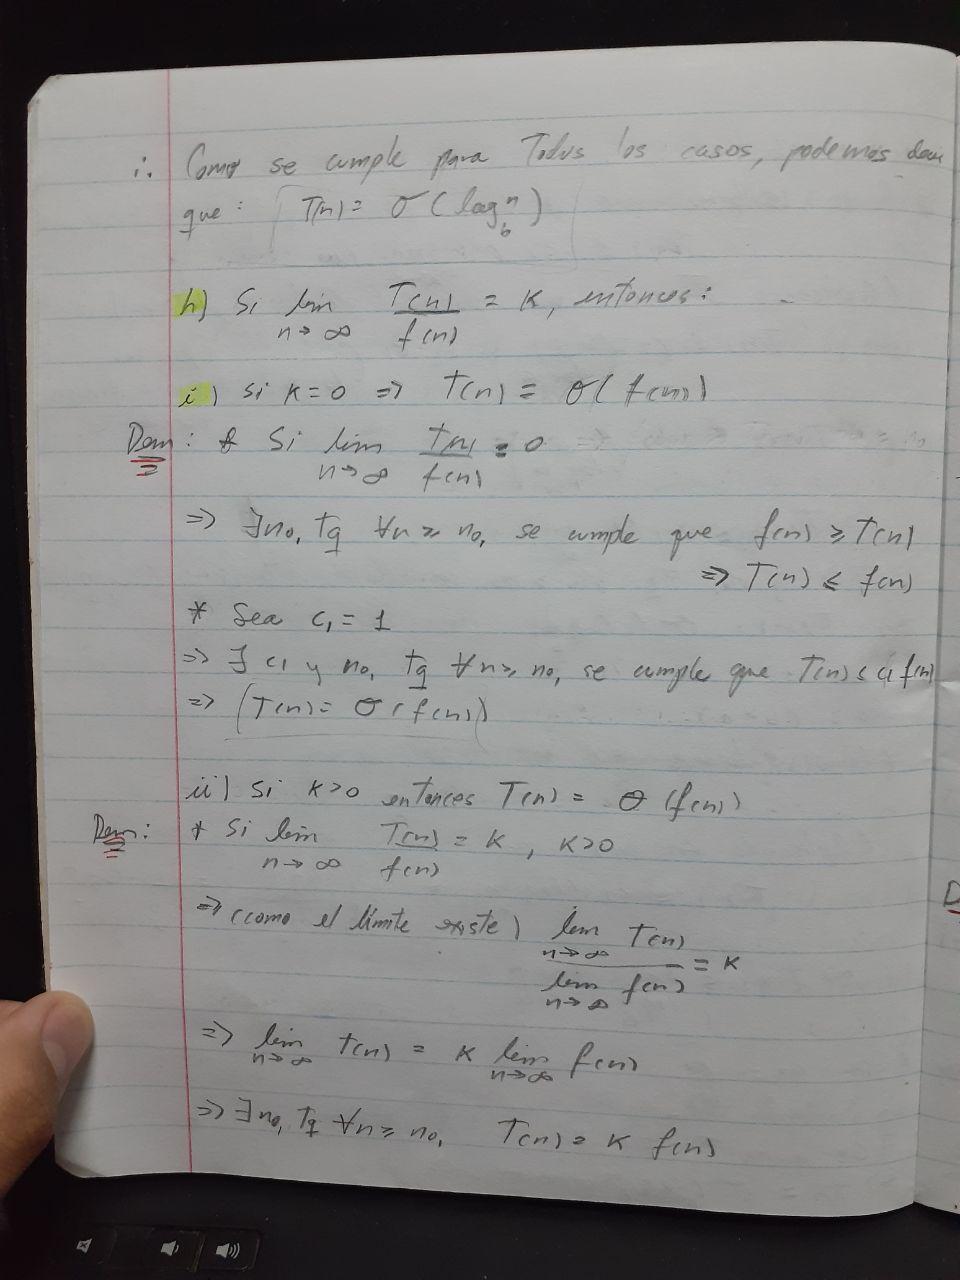 i. Como se cumple para Todos los casos, podemos decir
que: T(n) = O(log_b n)
h) Si lim n→∞ T(n)/f(n) = K, entonces:
i) si K=0 => T(n) = O(f(n))
Dem: * Si lim n→∞ T(n)/f(n) = 0
=> ∃n₀, Tq ∀n ≥ n₀, se cumple que f(n) ≥ T(n)
=> T(n) ≤ f(n)
* Sea c₁ = 1
=> ∃ c₁ y n₀, Tq ∀n ≥ n₀, se cumple que T(n) ≤ c₁ f(n)
=> T(n) = O(f(n))
ii) Si K>0 entonces T(n) = θ(f(n))
Dem: * Si lim n→∞ T(n)/f(n) = K, K>0
=> (como el límite existe) lim n→∞ T(n) / lim n→∞ f(n) = K
=> lim n→∞ T(n) = K lim n→∞ f(n)
=> ∃n₀, Tq ∀n ≥ n₀, T(n) = K f(n)
D